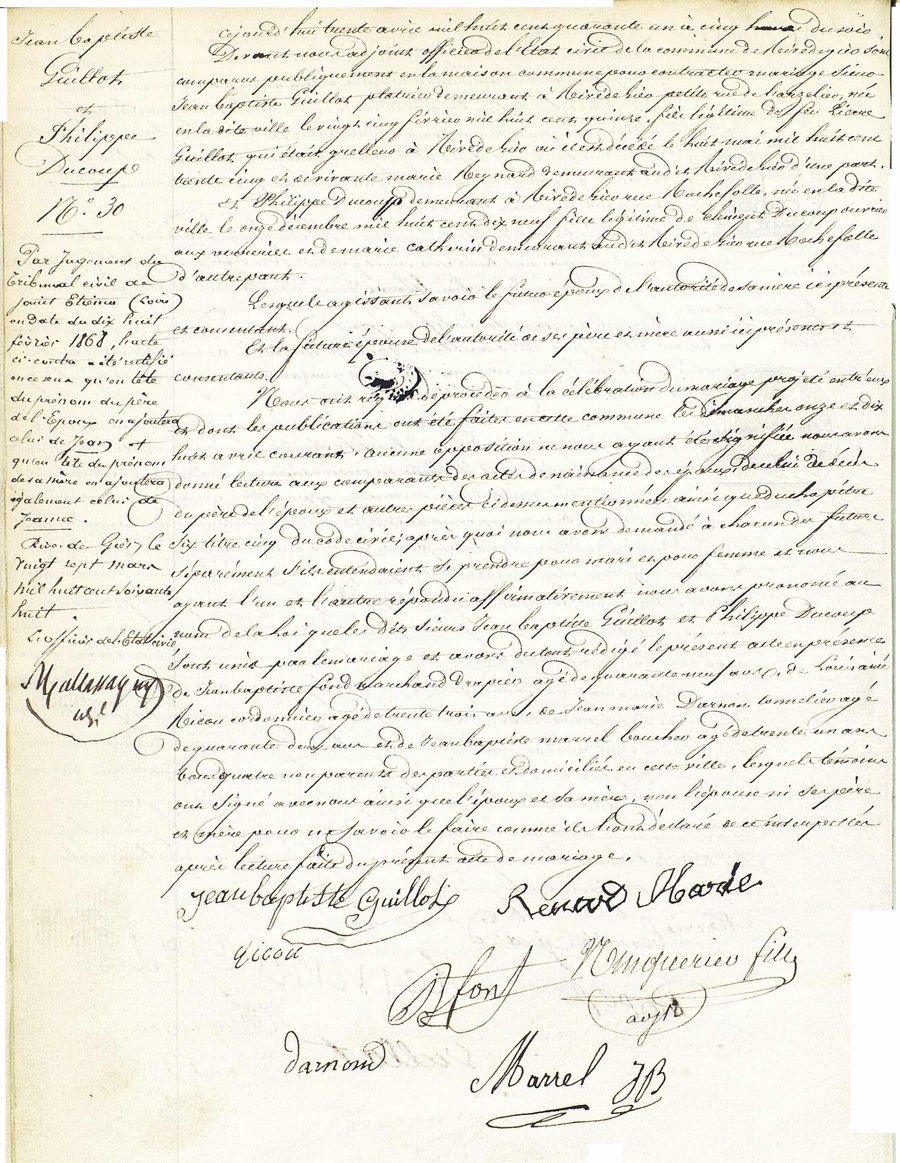 Jean baptiste
Guillot
et
Philippe
Ducoup
N.º 30
Par Jugement du
Tribunal civil de
Saint Etienne (Loire)
en date du dix huit
février 1868, l'acte
ci-contre a été rectifié
en ce sens qu'en tête
du prénom du père
de l'Epoux on ajoutera
celui de Jean et
qu'en tête du prénom
de sa mère on ajoutera
également celui de
Jeanne.
Rive de Gier, le
vingt sept mars
mil huit cent soixante
huit
L'officier de l'Etat civil,
cejourd'hui trente avril mil huit cent quarante un à cinq heures du soir
Devant nous adjoint officier de l'Etat civil de la commune de Rivedegier sont
comparus publiquement en la maison commune pour contracter mariage Sieur
Jean baptiste Guillot platrier demeurant à Rivedegier petite rue née
en la dite ville le vingt cinq février mil huit cent quinze, fils légitime de feu Pierre
Guillot, qui était à Rivedegier où il est décédé le huit mai mil huit cent
trente cinq et de vivante marie Reynard demeurant audit Rivedegier d'une part.
et Philippe Ducoup demeurant à Rivedegier rue Rochefolle, née en la dite
ville le onze décembre mil huit cent dix neuf fille légitime de Clément Ducoup ouvrier
aux verreries et de marie catherin demeurant audit Rivedegier rue Rochefolle
d'autre part.
Lesquels agissant savoir le futur époux de l'autorité de sa mère ici présente
et consentant.
Et la future épouse de l'autorité de ses père et mère aussi ici présents et
consentants.
Nous ont requis de procéder à la célébration du mariage projeté entr'eux
et dont les publications ont été faites en cette commune les dimanches onze et dix
huit avril courant. aucune opposition ne nous ayant été signifiée nous avons
donné lecture aux comparants des actes de naissance des époux de celui de décès
du père de l'époux et autres pièces ci dessus mentionnées ainsi que du chapitre
six titre cinq du code civil; après quoi nous avons demandé à chacun des futurs
séparément s'ils entendaient se prendre pour mari et pour femme et nous
ayant l'un et l'autre répondu affirmativement nous avons prononcé au
nom de la loi que les dits sieurs Jean baptiste Guillot et Philippe Ducoup
sont unis par le mariage et avons du tout rédigé le présent acte en présence
de Jean baptiste fond marchand drapier agé de quarante neuf ans, de Louis aimé
Ricou cordonnier agé de trente trois ans, de Jean marie Darnon tonnelier agé
de quarante deux ans et de Jean baptiste marrel boucher agé de trente un ans
tous quatre non parents des parties et domiciliés en cette ville, lesquels témoins
ont signé avec nous ainsi que l'époux et sa mère, non l'épouse ni ses père
et mère pour ne savoir le faire comme ils l'ont déclaré de ce interpellés
après lecture faite du présent acte de mariage.
Jean baptiste Guillot
Renard Marie
Ricou
Bfont
fils
adjt
darnond
Marrel JB